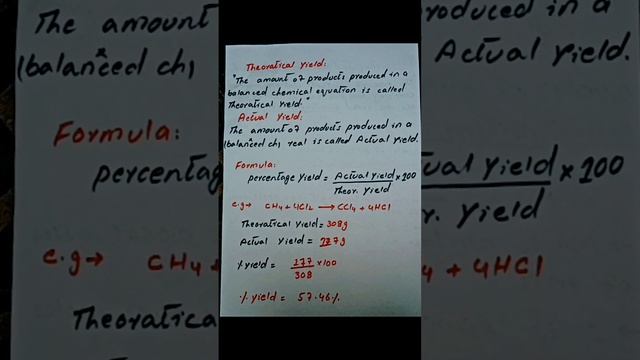 Theoratical Yield:
"The amount of products produced in a
balanced chemical equation is called
Theoratical Yield."
Actual Yield:
The amount of products produced in a
(balanced ch) real is called Actual Yield.
Formula:
percentage Yield = Actual Yield × 100
Theor. Yield
e.g → CH4 + 4Cl2 → CCl4 + 4HCl
Theoratical Yield = 308g
Actual Yield = 177g
% yield = 177 × 100
308
% Yield = 57.46%
The amount
roduced in a
(balanced ch)
Actual Yield.
Formula:
percentage
ual Yield × 100
r. Yield
e.g → CH4
4 + 4HCl
Theoratica